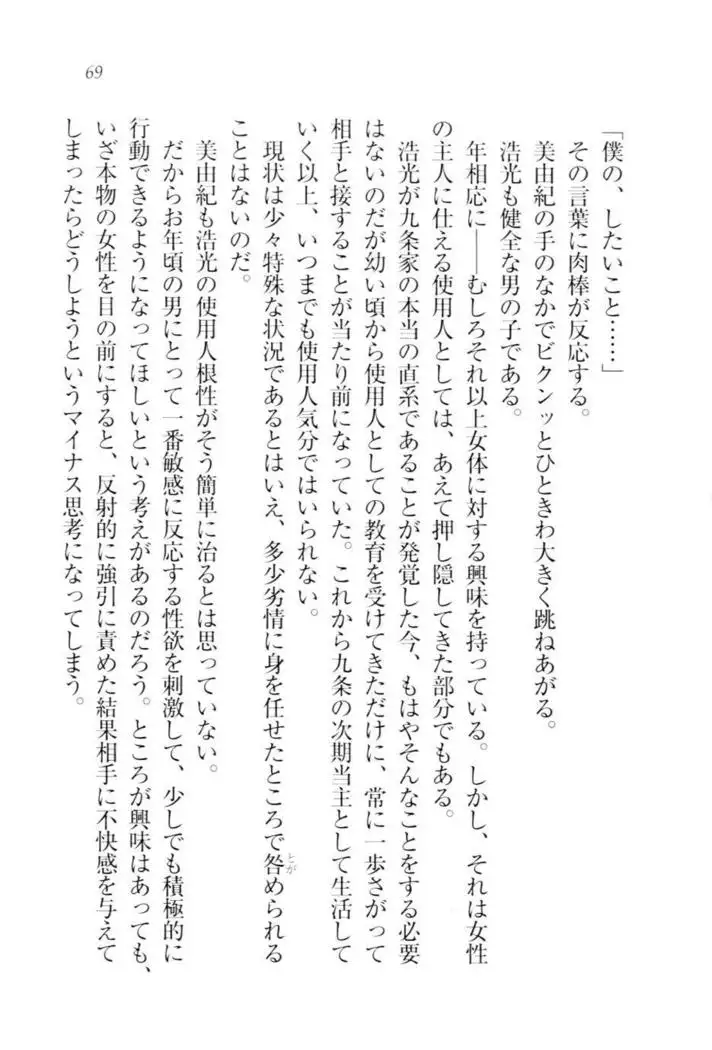 69
「僕の、したいこと……」
その言葉に肉棒が反応する。
美由紀の手のなかでビクンッとひときわ大きく跳ねあがる。
浩光も健全な男の子である。
年相応に――むしろそれ以上女体に対する興味を持っている。しかし、それは女性
の主人に仕える使用人としては、あえて押し隠してきた部分でもある。
浩光が九条家の本当の直系であることが発覚した今、もはやそんなことをする必要
はないのだが幼い頃から使用人としての教育を受けてきただけに、常に一歩さがって
相手と接することが当たり前になっていた。これから九条の次期当主として生活して
いく以上、いつまでも使用人気分ではいられない。
現状は少々特殊な状況であるとはいえ、多少劣情に身を任せたところで咎められる
とが
ことはないのだ。
美由紀も浩光の使用人根性がそう簡単に治るとは思っていない。
だからお年頃の男にとって一番敏感に反応する性欲を刺激して、少しでも積極的に
行動できるようになってほしいという考えがあるのだろう。ところが興味はあっても、
いざ本物の女性を目の前にすると、反射的に強引に責めた結果相手に不快感を与えて
しまったらどうしようというマイナス思考になってしまう。